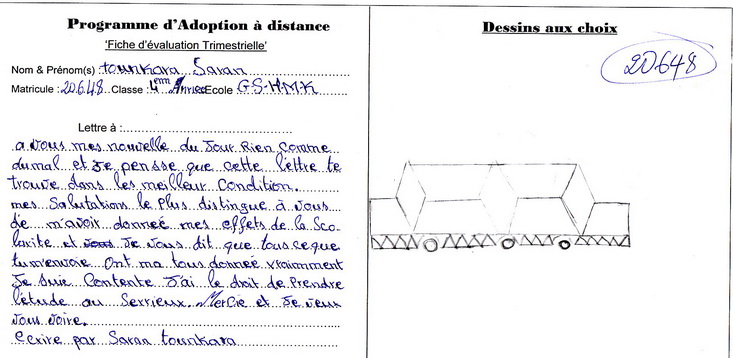 Programme d'Adoption à distance
'Fiche d'évaluation Trimestrielle'
Nom & Prénom(s) : tounkara Saran
Matricule : 20648 Classe : 4èm Année Ecole G-S-H-M-K
Lettre à :
a vous mes nouvelle du Jour Rien Comme
du mal et Je pensse que cette lettre te
trouve dans les meilleur Condition.
mes Salutations le Plus distingue à vous
de m'avoir donneé mes effets de la Sco-
larite et Je vous dit que tous ce que
tu m'envoie Ont ma tous donneé vraimment
Je Suie Contente J'ai le droit de Prendre
l'étude au Serrieux. Mercie et Je veux
vous voire.
ecrire par Saran tounkara
Dessins aux choix
20648